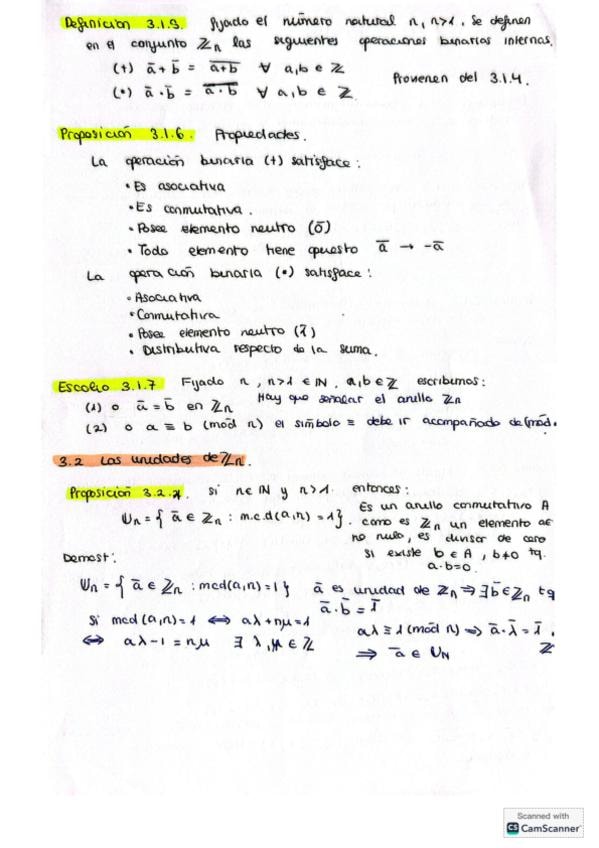 Definición 3.1.5. fijado el número natural n, n>1, se definen
en el conjunto ℤn las siguientes operaciones binarias internas.
(+) a̅ + b̅ = \overline{a+b} ∀ a,b ∈ ℤ
Provienen del 3.1.4.
(•) a̅ · b̅ = \overline{a·b} ∀ a,b ∈ ℤ
Proposición 3.1.6. Propiedades.
La operación binaria (+) satisface:
• Es asociativa
• Es conmutativa.
• Posee elemento neutro (0̅)
• Todo elemento tiene opuesto a̅ → -a̅
La operación binaria (•) satisface:
• Asociativa
• Conmutativa
• Posee elemento neutro (1̅)
• Distributiva respecto de la suma.
Escolio 3.1.7 Fijado n, n>1 ∈ ℕ. a,b ∈ ℤ escribimos:
(1) o a̅ = b̅ en ℤn Hay que señalar el anillo ℤn
(2) o a ≡ b (mód n) el símbolo ≡ debe ir acompañado de (mód.
3.2 Las unidades de ℤn.
Proposición 3.2.1. si n∈ℕ y n>1. entonces:
Un = { a̅ ∈ ℤn : m.c.d(a,n) = 1}.
Es un anillo conmutativo A
como es ℤn un elemento ae
no nulo, es divisor de cero
si existe b ∈ A, b≠0 tq.
a·b=0.
Demost:
Un = { a̅ ∈ ℤn : mcd(a,n)=1} a̅ es unidad de ℤn ⇒ ∃ b̅ ∈ ℤn tq
a̅ · b̅ = 1̅
Si mcd (a,n)=1 ⇔ aλ+nμ=1
⇔ aλ-1 = nμ ∃ λ,μ ∈ ℤ
aλ ≡ 1 (mód n) ⇒ a̅ · λ̅ = 1̅.
⇒ a̅ ∈ UN
ℤ
Scanned with
CS CamScanner